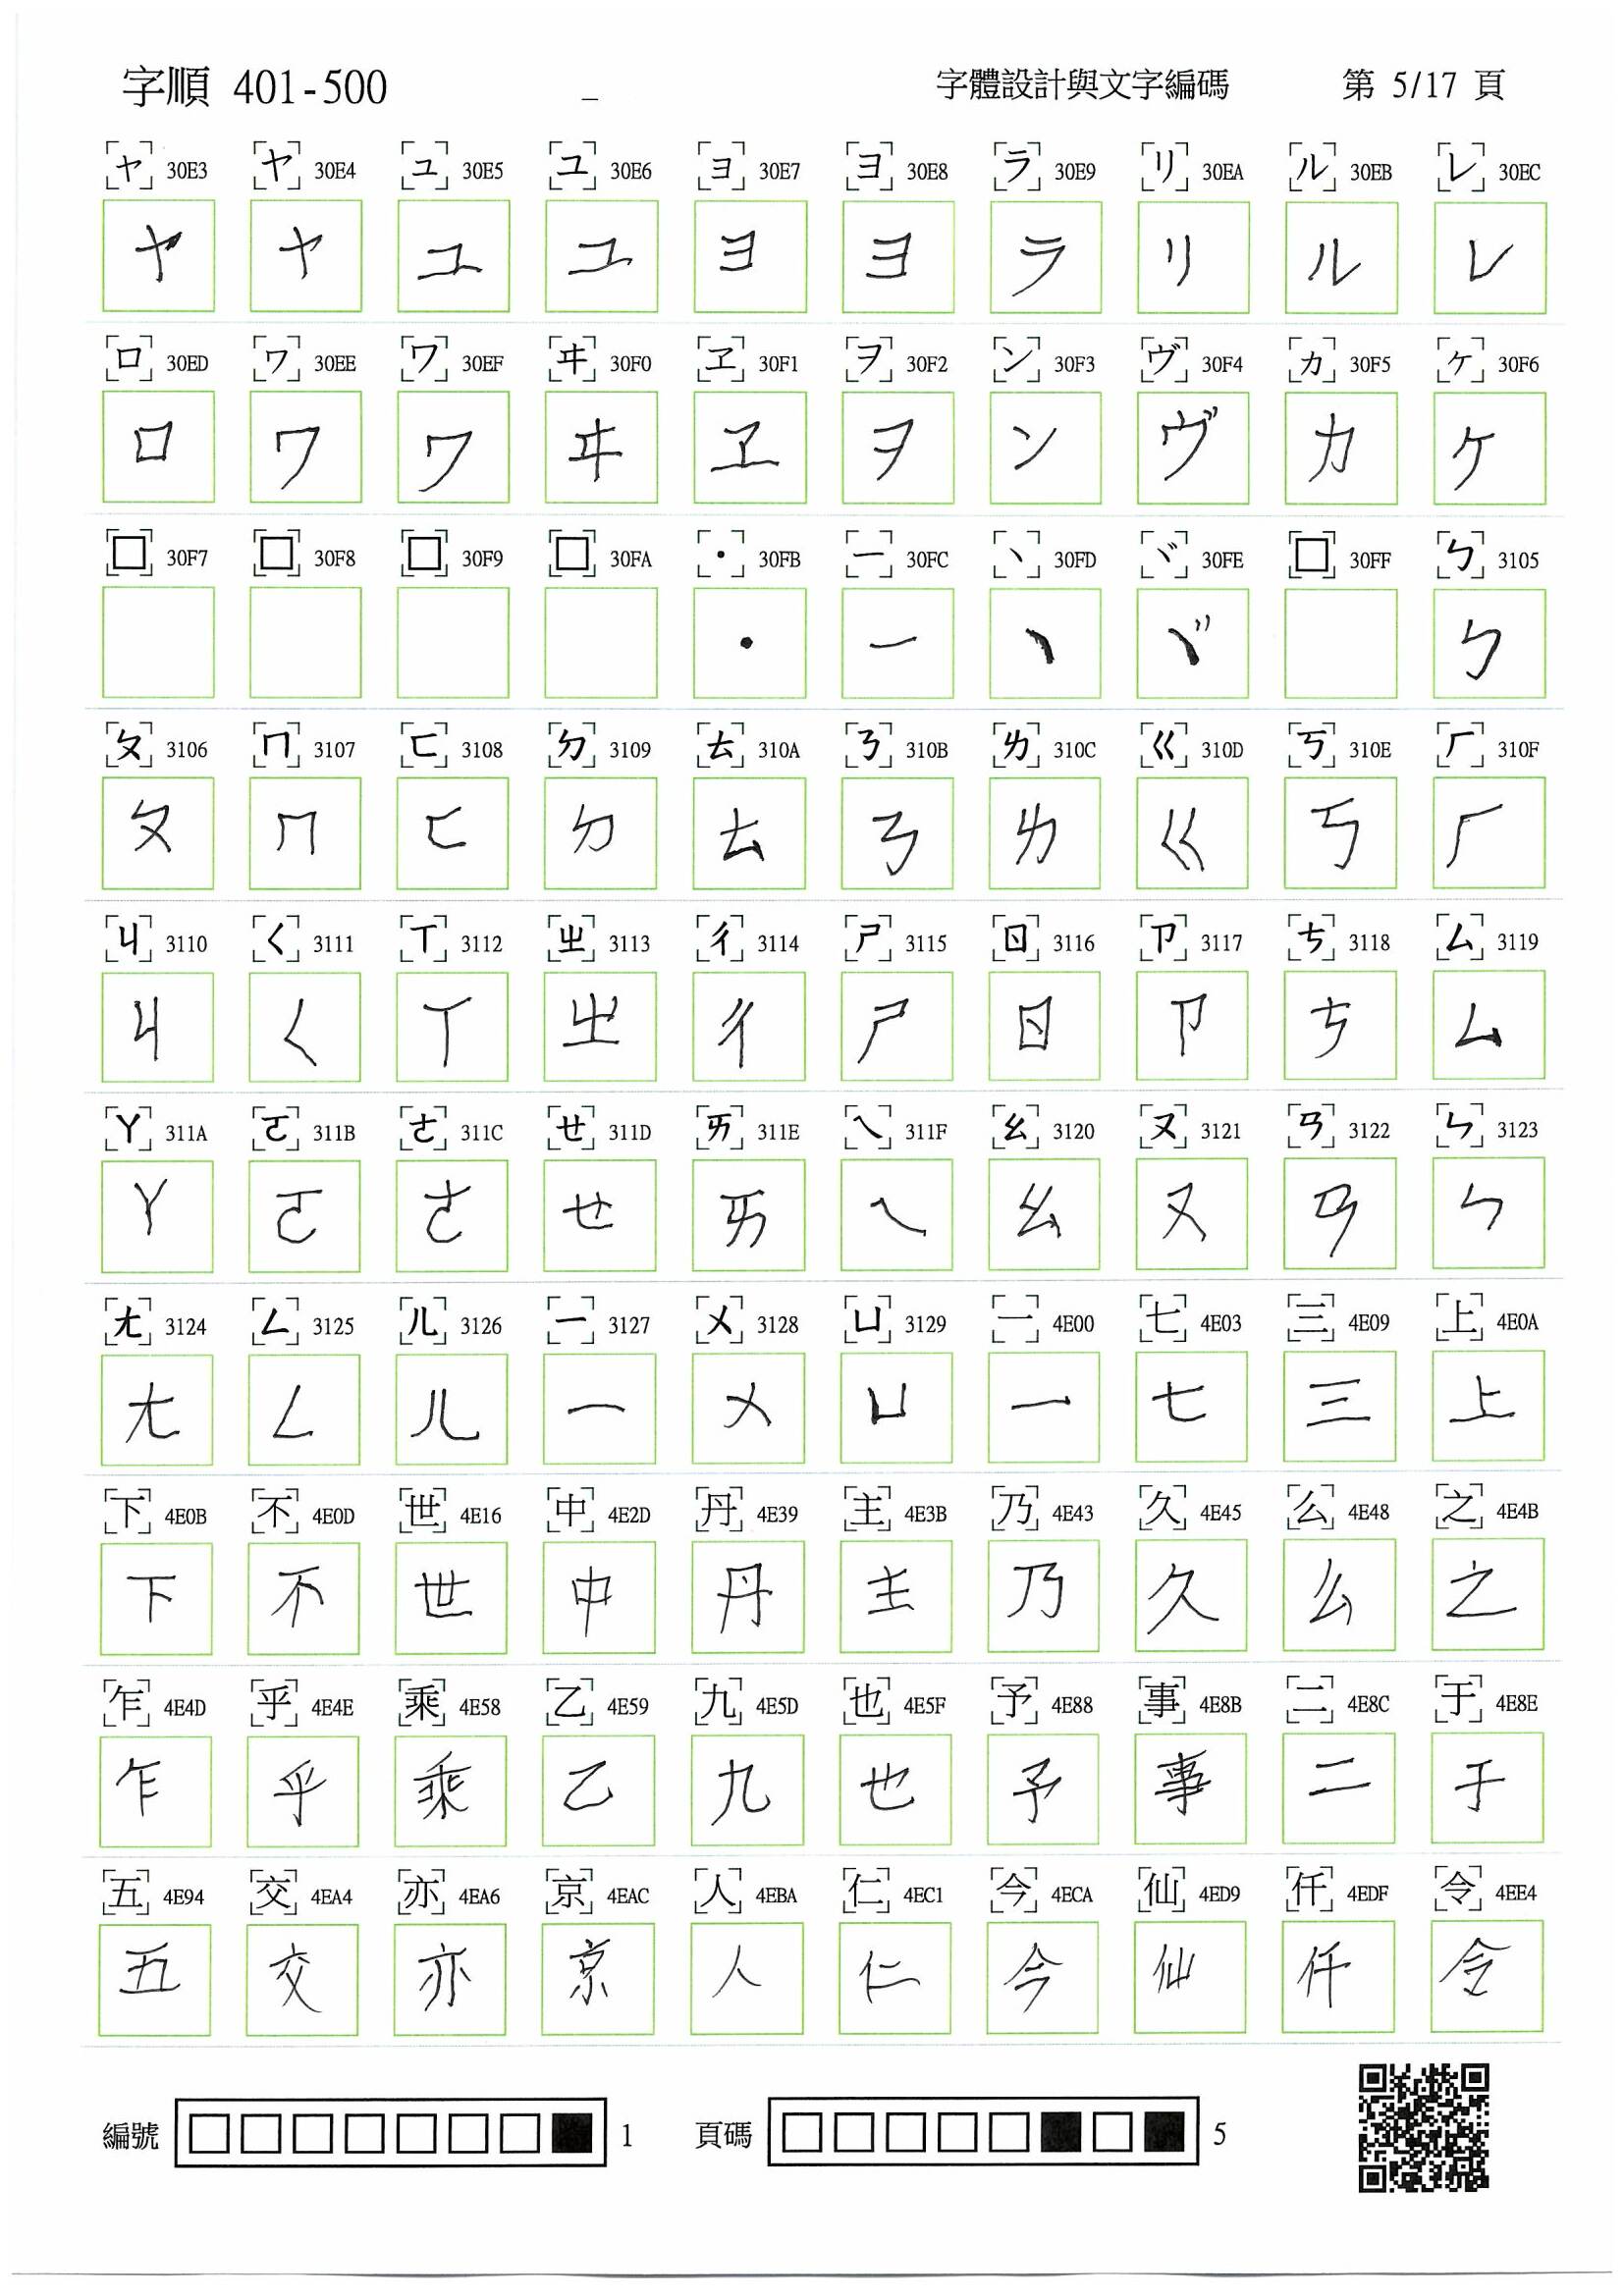 字順 401-500 _ 字體設計與文字編碼 第 5/17 頁
ャ 30E3 ヤ 30E4 ュ 30E5 ユ 30E6 ョ 30E7 ヨ 30E8 ラ 30E9 リ 30EA ル 30EB レ 30EC
ャ ヤ ュ ユ ョ ヨ ラ リ ル レ
ロ 30ED ヮ 30EE ワ 30EF ヰ 30F0 ヱ 30F1 ヲ 30F2 ン 30F3 ヴ 30F4 ヵ 30F5 ヶ 30F6
ロ ヮ ワ ヰ ヱ ヲ ン ヴ ヵ ヶ
□ 30F7 □ 30F8 □ 30F9 □ 30FA ・ 30FB ー 30FC ヽ 30FD ヾ 30FE □ 30FF ㄅ 3105
・ ー ヽ ヾ ㄅ
ㄆ 3106 ㄇ 3107 ㄈ 3108 ㄉ 3109 ㄊ 310A ㄋ 310B ㄌ 310C ㄍ 310D ㄎ 310E ㄏ 310F
ㄆ ㄇ ㄈ ㄉ ㄊ ㄋ ㄌ ㄍ ㄎ ㄏ
ㄐ 3110 ㄑ 3111 ㄒ 3112 ㄓ 3113 ㄔ 3114 ㄕ 3115 ㄖ 3116 ㄗ 3117 ㄘ 3118 ㄙ 3119
ㄐ ㄑ ㄒ ㄓ ㄔ ㄕ ㄖ ㄗ ㄘ ㄙ
ㄚ 311A ㄛ 311B ㄜ 311C ㄝ 311D ㄞ 311E ㄟ 311F ㄠ 3120 ㄡ 3121 ㄢ 3122 ㄣ 3123
ㄚ ㄛ ㄜ ㄝ ㄞ ㄟ ㄠ ㄡ ㄢ ㄣ
ㄤ 3124 ㄥ 3125 ㄦ 3126 ㄧ 3127 ㄨ 3128 ㄩ 3129 一 4E00 七 4E03 三 4E09 上 4E0A
ㄤ ㄥ ㄦ ㄧ ㄨ ㄩ 一 七 三 上
下 4E0B 不 4E0D 世 4E16 中 4E2D 丹 4E39 主 4E3B 乃 4E43 久 4E45 么 4E48 之 4E4B
下 不 世 中 丹 主 乃 久 么 之
乍 4E4D 乎 4E4E 乘 4E58 乙 4E59 九 4E5D 也 4E5F 予 4E88 事 4E8B 二 4E8C 于 4E8E
乍 乎 乘 乙 九 也 予 事 二 于
五 4E94 交 4EA4 亦 4EA6 京 4EAC 人 4EBA 仁 4EC1 今 4ECA 仙 4ED9 仟 4EDF 令 4EE4
五 交 亦 京 人 仁 今 仙 仟 令
編號 1 頁碼 5